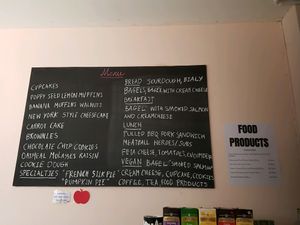 Menu
CUPCAKES
POPPY SEED LEMON MUFFINS
BANANA MUFFINS WALNUTS
NEW YORK STYLE CHEESECAKE
CARROT CAKE
BROWNIES
CHOCOLATE CHIP COOKIES
OATMEAL MOLASSES RAISIN
COOKIE DOUGH
SPECIALTIES "FRENCH SILK PIE"
"PUMPKIN PIE"
BREAD SOURDOUGH, BIALY
BAGELS, BAGEL WITH CREAM CHEESE
BREAKFAST
BAGEL WITH SMOKED SALMON
AND CREAMCHEESE
LUNCH
PULLED BBQ PORK SANDWICH
MEATBALL HEROES/SUBS
FETA CHEESE, TOMATOES, CUCUMBER
VEGAN BAGEL SMOKED SALMON
CREAM CHEESE, CUPCAKE, COOKIES
COFFEE, TEA, FOOD PRODUCTS
FOOD
PRODUCTS